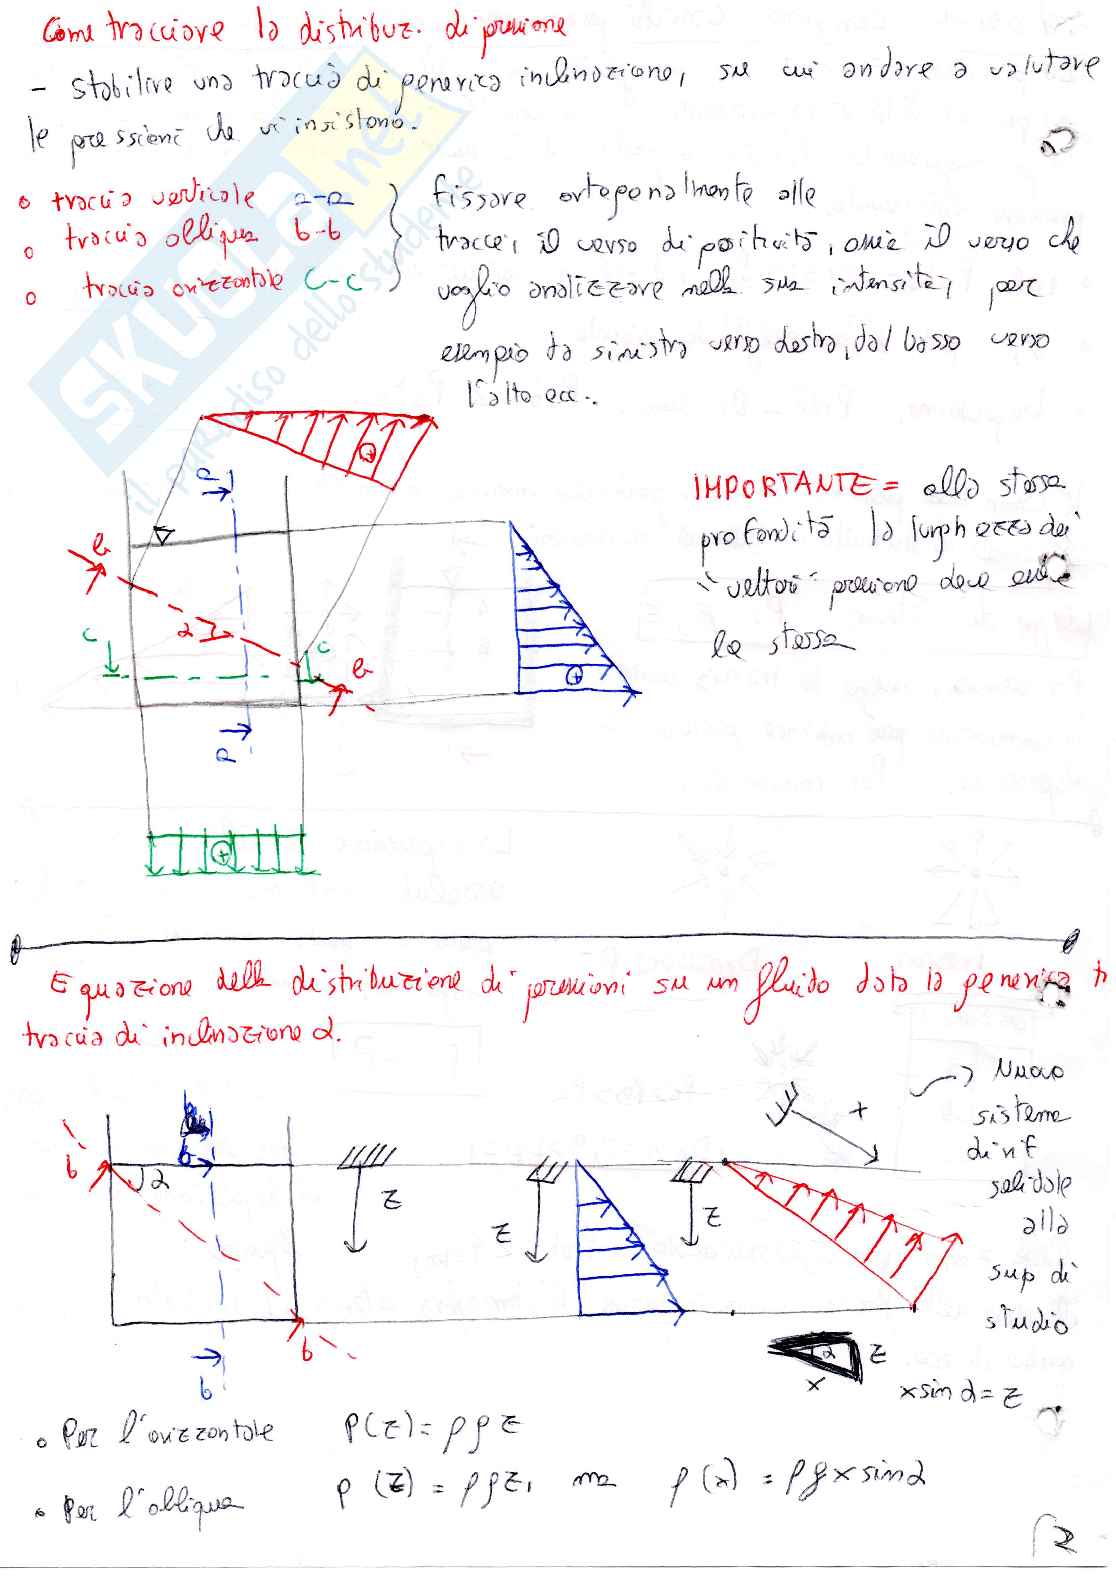 Come tracciare la distribuz. di pressione
- Stabilire una traccia di generica inclinazione, su cui andare a valutare
le pressioni che vi insistono.
o traccia verticale a-a
o traccia obliqua b-b
o traccia orizzontale C-C
fissare ortogonalmente alle
tracce, il verso di positività, ossia il verso che
voglio analizzare nella sua intensità, per
esempio da sinistra verso destra, dal basso verso
l'alto ecc..
SKUOLA.net
il paradiso dello studente
IMPORTANTE = alla stessa
profondità la lunghezza dei
"vettori" pressione deve essere
la stessa
a
b
α
c
c
b
a
+
+
+
Equazione della distribuzione di pressioni su un fluido data la generica
traccia di inclinazione α.
Nuovo
sistema
di rif
solidale
alla
sup di
studio
+
b
b
α
z
z
z
b
b
α
z
x
x sin α = z
o Per l'orizzontale P(z) = ρgz
o Per l'obliqua p(z) = ρgz, ma p(x) = ρgx sin α
2